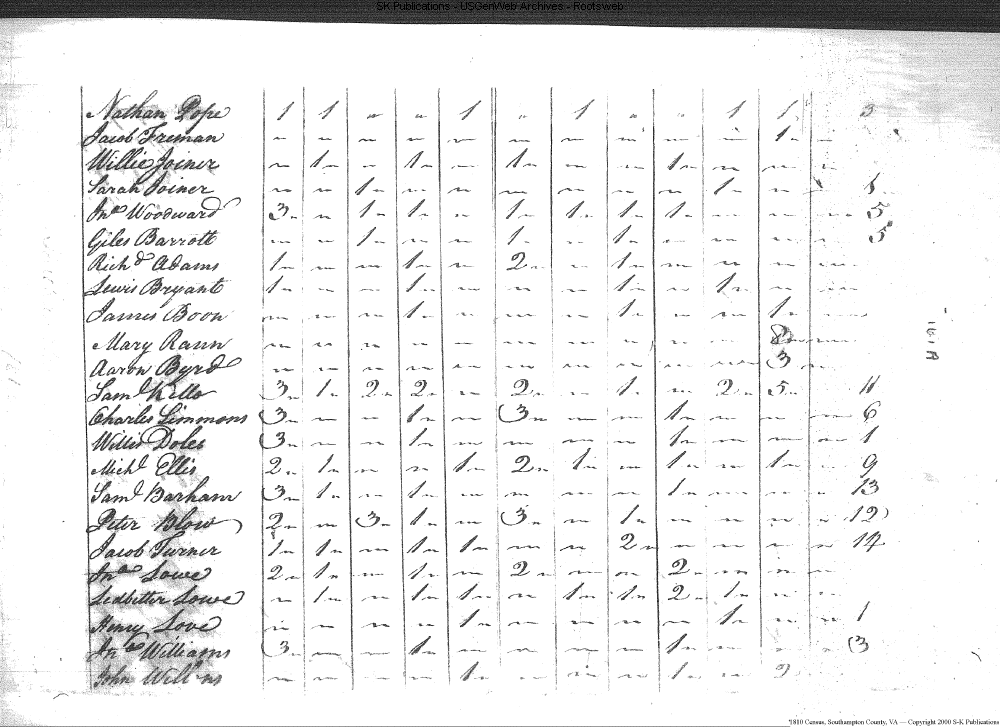 SK Publications - USGenWeb Archives - Rootsweb
Nathan Pope 1 1 " " 1 " 1 " " 1 1 3
Jacob Freman " " " " " " " " " " 1 "
Willie Joiner " 1 " 1 " 1 " " 1 " " "
Sarah Joiner " " 1 " " " " " " 1 " " 1
Jno Woodward 3 " 1 1 " 1 1 1 1 " " " 5
Giles Barrott " " 1 " " 1 " 1 " " " " 5
Richd Adams 1 " " 1 " 2 " 1 " " " "
Lewis Bryant 1 " " 1 " " " 1 " 1 " "
James Boon " " " 1 " " " 1 " " 1 "
Mary Rann " " " " " " " " " "
Aaron Byrd " " " " " " " " " " 3
Saml Kello 3 1 2 2 " 2 " 1 " 2 5 " 11
Charles Simmons 3 " " 1 " 3 " " 1 " " " 6
Willis Doles 3 " " 1 " " " " 1 " " " 1
Michl Ellis 2 1 " " 1 2 1 " 1 " 1 " 9
Saml Barham 3 1 " 1 " " " " 1 " " " 13
Peter Blow 2 " 3 1 " 3 " 1 " " " " 12
Jacob Turner 1 1 " 1 1 " " 2 " " " "
Jno Lowe 2 1 " 1 " 2 " " 2 " " "
Ledbetter Lowe " 1 " 1 1 " 1 1 2 1 "
Henry Love " " " " 1 " " " " 1 " " 1
Jno Williams 3 " " 1 " " " " 1 " " " 3
John " " " " 1 " " " 1 "
161A
1810 Census, Southampton County, VA — Copyright 2000 S-K Publications